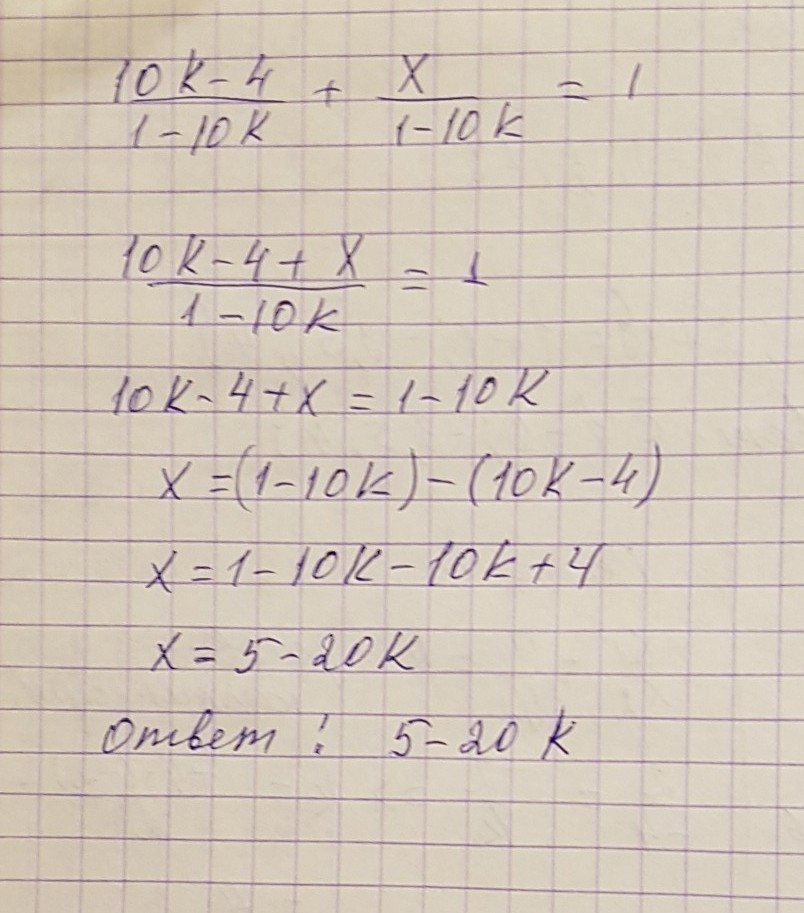 10k-4/1-10k + x/1-10k = 1
10k-4+x/1-10k = 1
10k-4+x = 1-10k
x=(1-10k)-(10k-4)
x=1-10k-10k+4
x=5-20k
Ответ: 5-20k